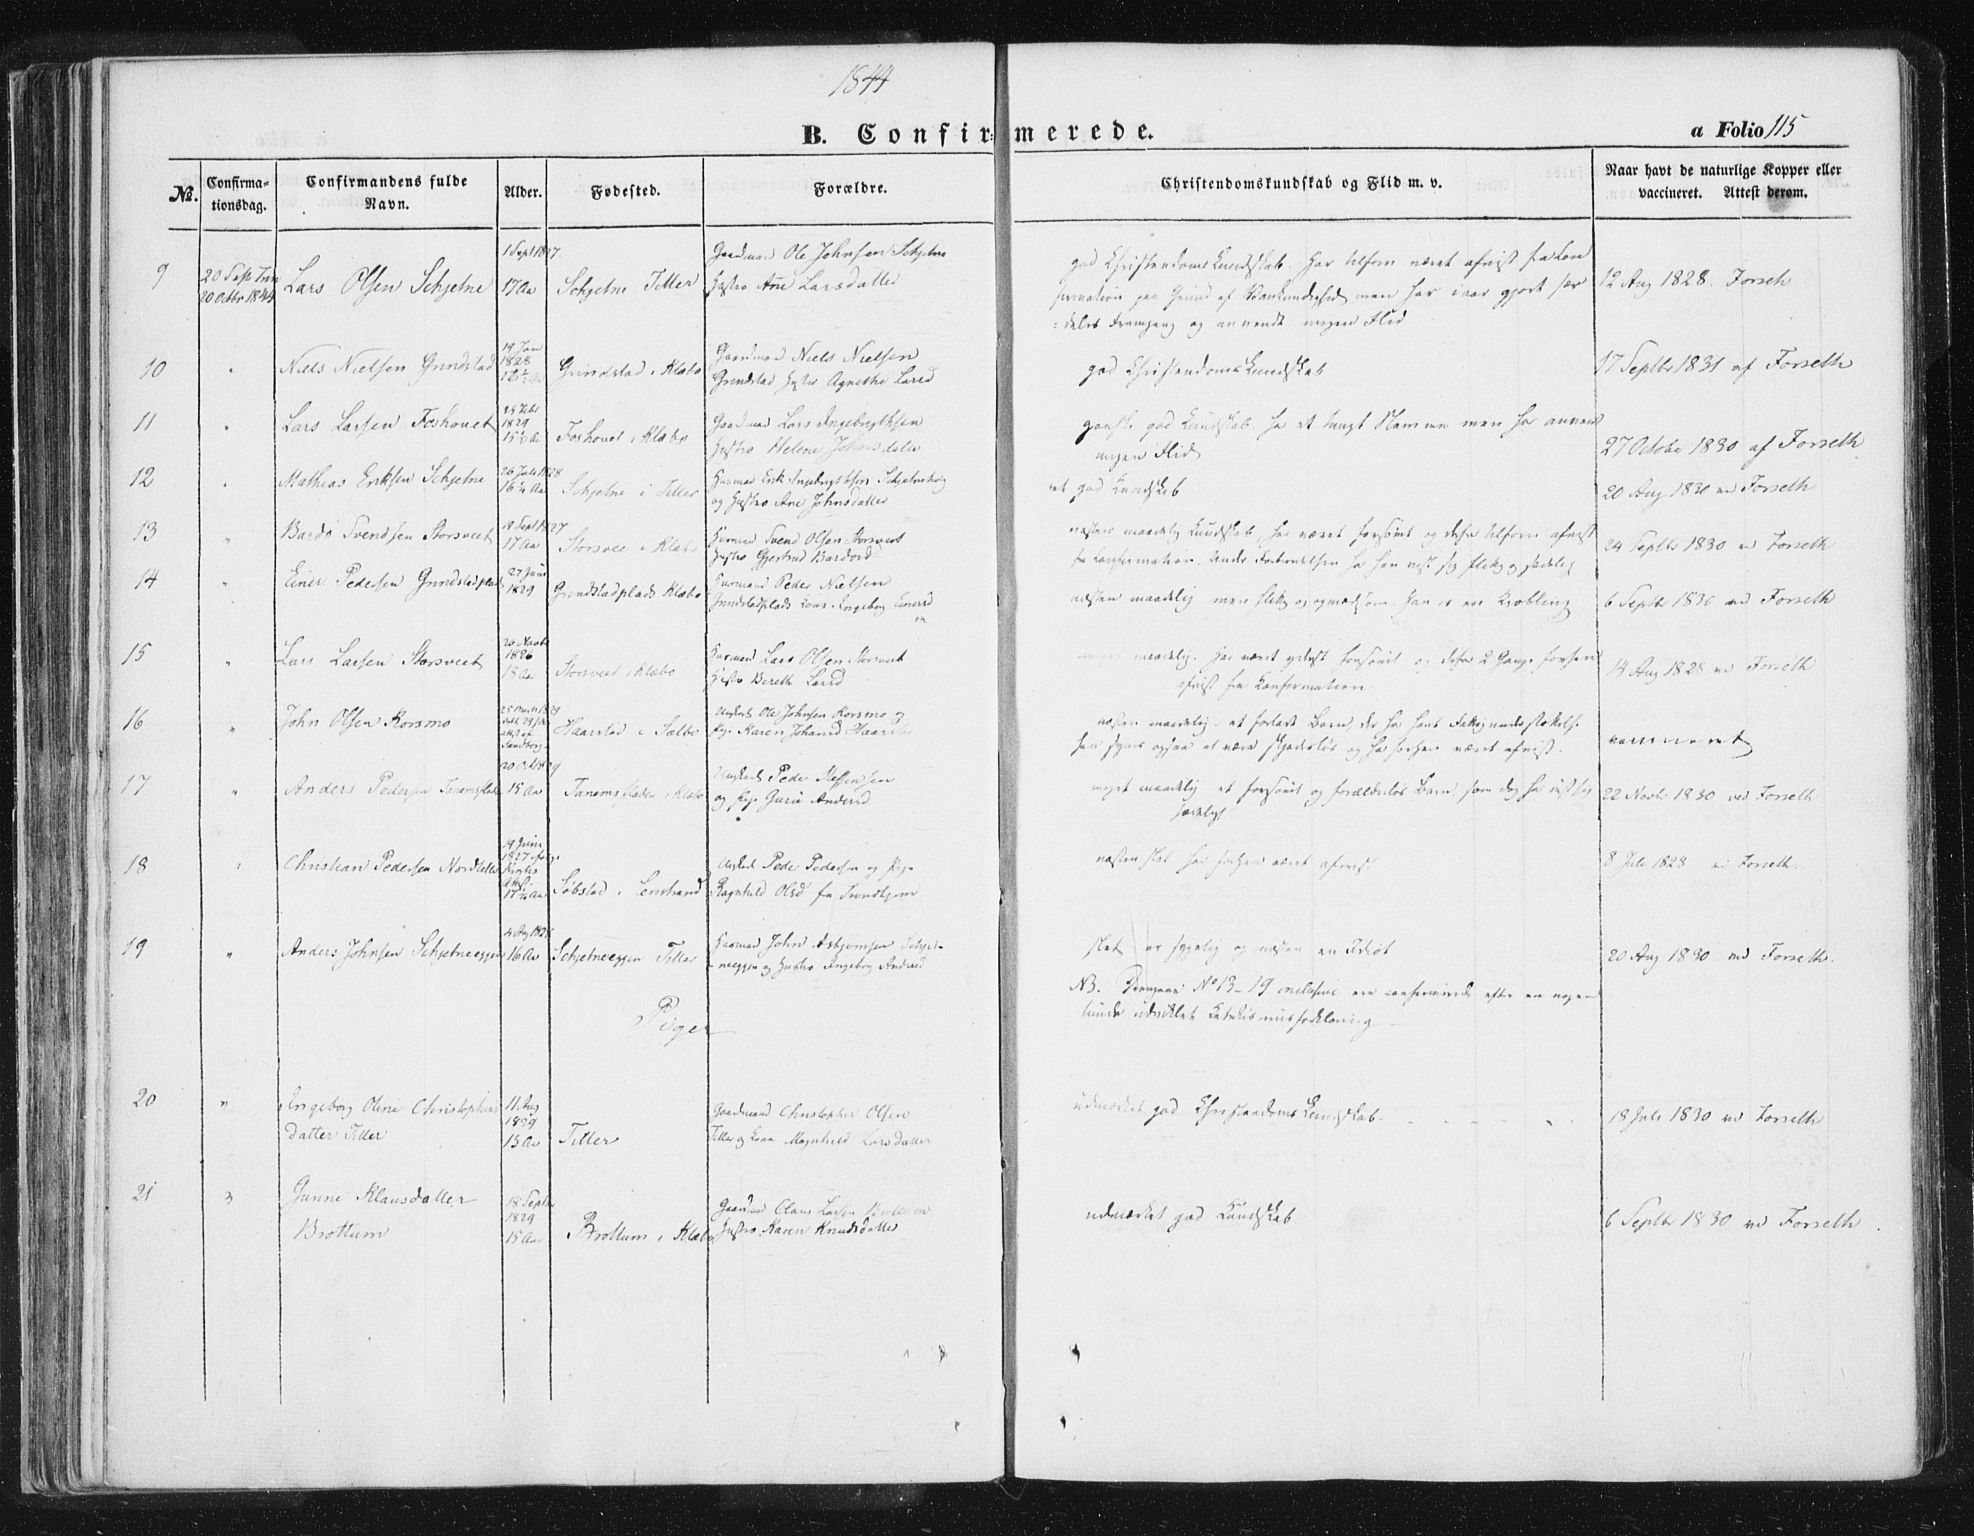 1844
B. Confirmerede.
a Folio 115
No.
Confirma-
tionsdag.
Confirmandens fulde
Navn.
Alder.
Fødested.
Forældre.
Christendomskundskab og Flid m. v.
Naar havt de naturlige Kopper eller
vaccineret. Attest derom.
9
20 October 1844
Lars Olsen Schjetne
1 Sept 1827
17 Aar
Schjetne Tiller
Gaardmand Ole Johnsen Schjetne
Hustro Ane Larsdatter
god Christendoms Kundskab. Har tilforn været afvist fra Con
firmation paa Grund af Vankundighed men har i aar gjort sær
deles Fremgang og anvendt megen Flid
12 Aug 1828. Forseth
10
"
Niels Nielsen Grundstad
19 Jan
1828
16½ Aar
Grundstad i Klæbo
Gaardmand Niels Nielsen
Grundstad Hustro Agnethe Larsd
god Christendoms Kundskab
17 Septbr 1831 af Forseth
11
"
Lars Larsen Foshovet
25 Febr
1829
15½ Aar
Foshovet i Klæbo
Gaardmand Lars Ingebrigthsen
Hustro Helene Johnsdatter
ganske god Kundskab. har et tungt Nemme men har anven
megen Flid
27 October 1830 af Forseth
12
"
Mathias Eriksen Schjetne
26 Juli 1828
16¼ Aar
Schjetne i Tiller
Huusmand Erik Ingebrigthsen Schjetne
og Hustro Ane Johnsdatter
god Kundskab
20 Aug 1830 ved Forseth
13
"
Bardo Svendsen Storsveet
18 Sept 1827
17 Aar
Storsvee i Klæbo
Huusmand Svend Olsen Storsveet
Hustro Gjertrud Bardosd
næsten maadelig Kundskab, har været forsømt og derfor tilforn afvist
fra Confirmation. Under Forberedelsen har han vist sig flittig og sædelig
24 Septbr 1830 ved Forseth
14
"
Einer Pedersen Grundstadplads
27 Juni
1829
Grundstadplads Klæbo
Huusmand Peder Nielsen
Grundstadplads Kone Ingeborg Einersd
næsten maadelig men flittig og opmærksom. Han er en Krøbling
6 Septbr 1830 ved Forseth
15
"
Lars Larsen Storsveet
20 Novbr
1826
18 Aar
Storsveet i Klæbo
Huusmand Lars Olsen Storsveet
Hustro Bereth Larsd
meget maadelig. Har været yderst forsømt og derfor 2 Gange forhen
afvist fra Confirmation
14 Aug 1828 ved Forseth
16
"
John Olsen Korsmo
25 Marts 1829
Haarstad i Sælbo
Ungkarl Ole Johnsen Korsmo og
Pige Karen Johansd Haarstad
næsten maadelig. et forladt Barn, der har havt Fattigunderstøttelse.
han synes ogsaa at være skjødesløs og har forhen været afvist.
vaccineret
17
"
Anders Pedersen Tanemsflaten
20 Octbr 1829
15 Aar
Tanemsfladen i Klæbo
Ungkarl Peder Steffensen
og Pige Guru Andersd
meget maadelig et forsømt og forældreløs Barn, som dog har vist sig
sædeligt
22 Novbr 1830 ved Forseth
18
"
Christian Pedersen Nordtiller
19 Juni
1827 ifølge
Attest
17¼ Aar
Søbstad i Leinstrand
Ungkarl Peder Pedersen og Pige
Ragnhild Olsd fra Trondhjem
næsten slet har forhen været afvist
8 Juli 1828 ved Forseth.
19
"
Anders Johnsen Schjetneeggen
4 Aug
16 Aar
Schjetneeggen Tiller
Huusmand John Asbjørnsen Schjet-
neeggen og Hustro Ingeborg Andersd
slet er sygelig og næsten en Idiot
20 Aug 1830 ved Forseth.
NB. Drengene No 13-19 inclusive ere confirmerede efter en nogen
lunde udviklet Katekismusforklaring
Piger
20
"
Ingeborg Oline Christophers
datter Tiller
11 Aug
1829
15 Aar
Tiller
Gaardmand Christopher Olsen
Tiller og Kone Magnhild Larsdatter
udmærket god Christendoms Kundskab.
18 Juli 1830 ved Forseth
21
"
Gunni Klausdatter
Brøttum
18 Septbr
1829
15 Aar
Brøttum i Klæbo
Gaardmand Claus Larsen Brøttum
Hustro Karen Knudsdatter
udmærket god Kundskab
6 Septbr 1830 ved Forseth